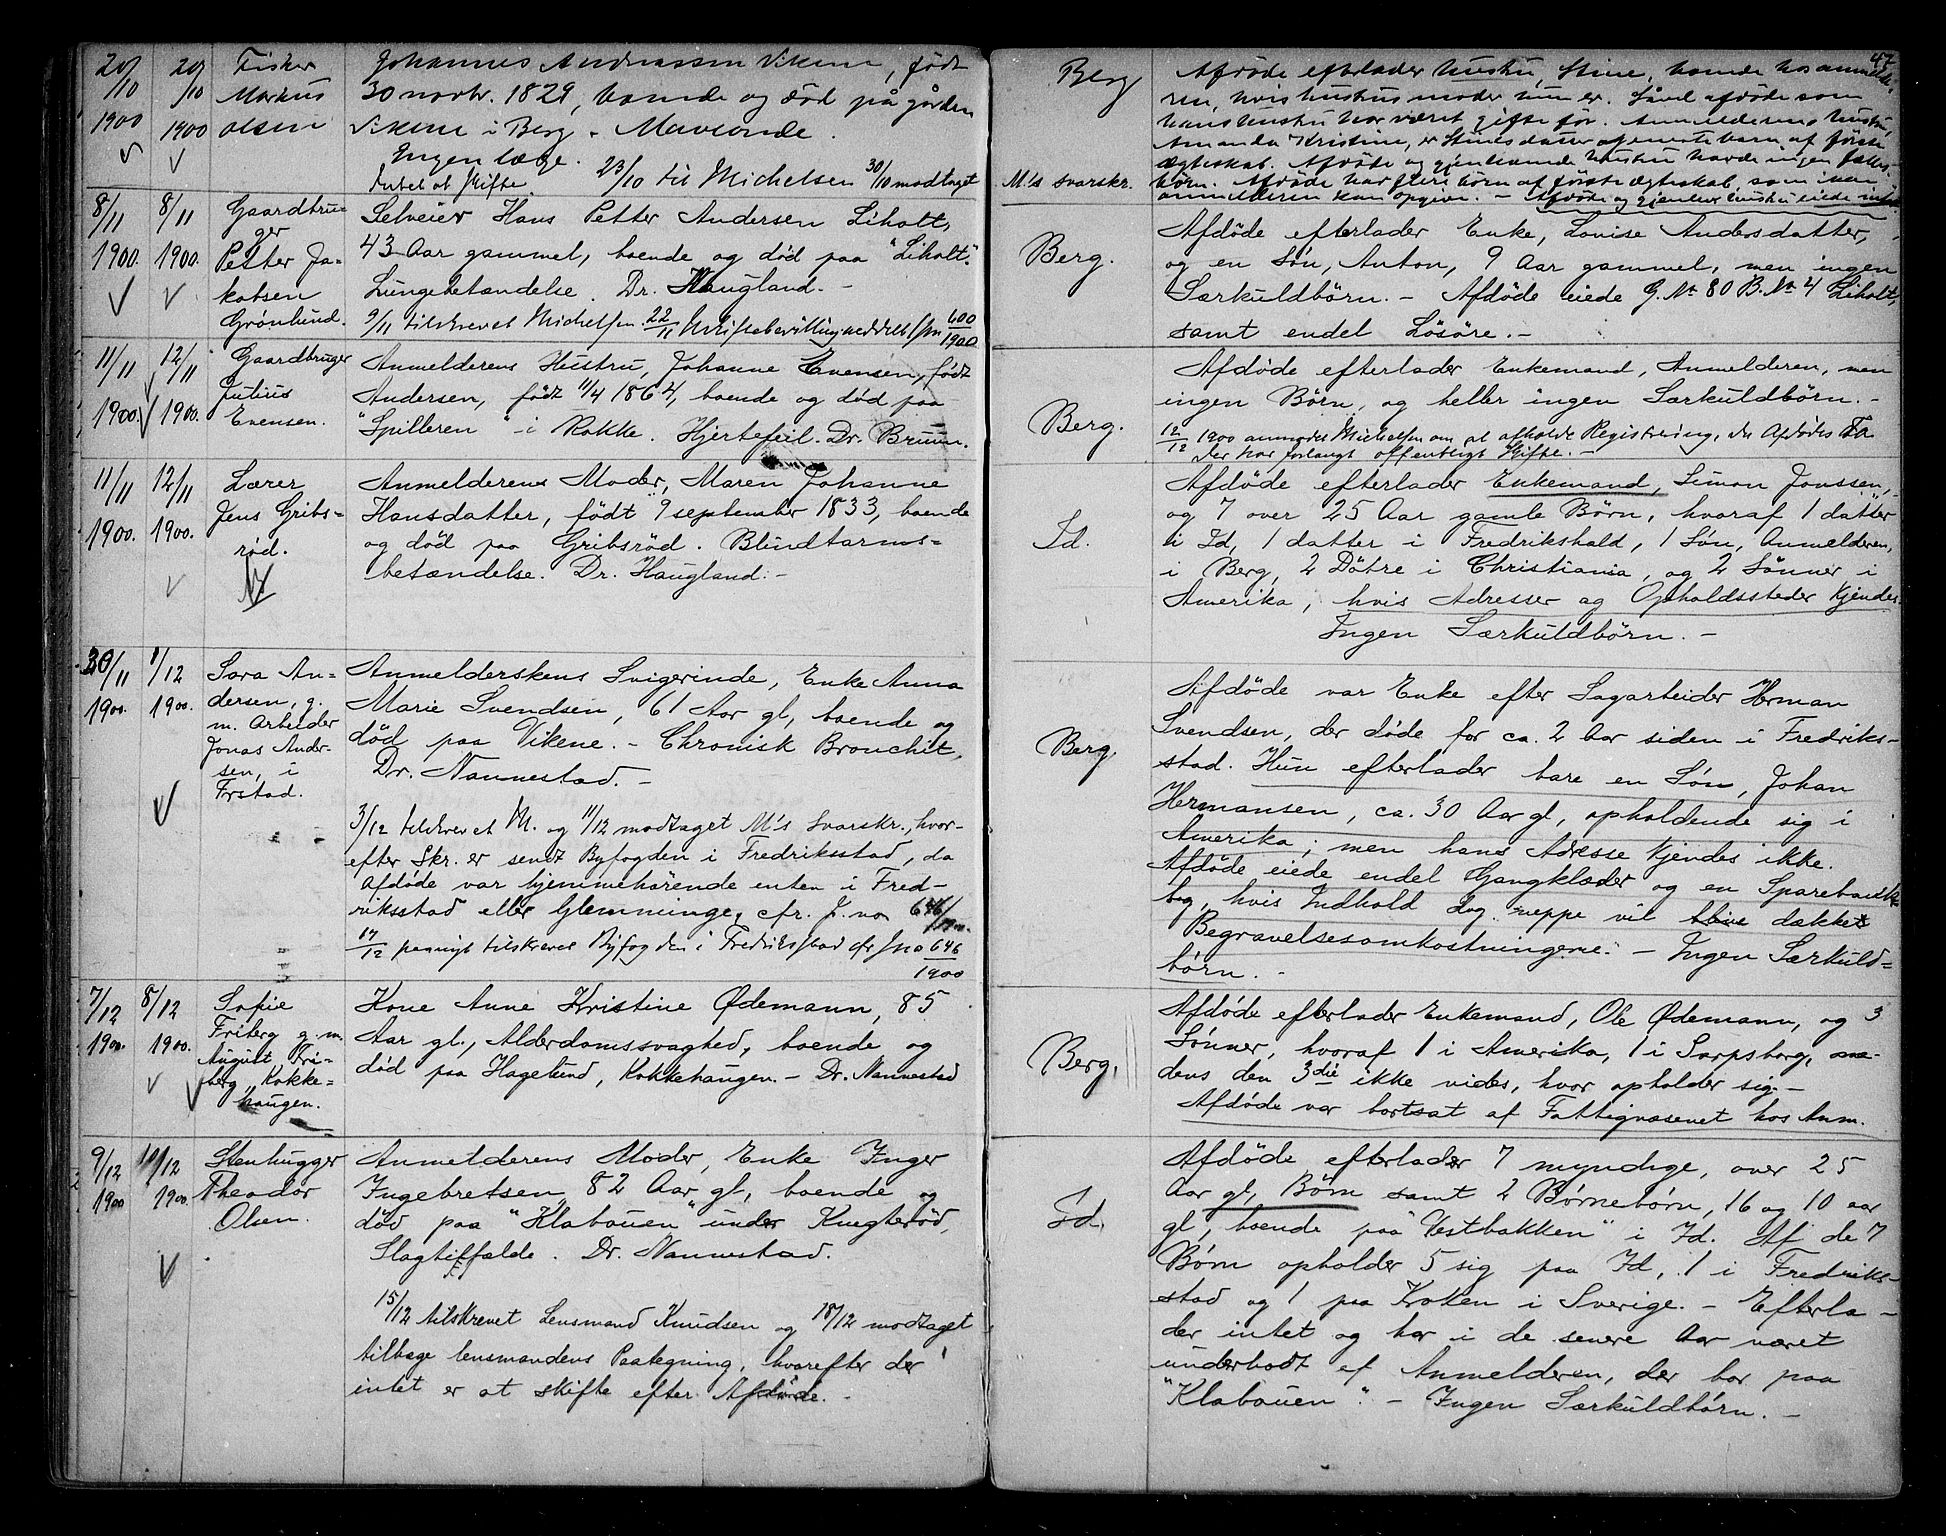 47
20/10 1900
20/10 1900
Fisker
Markus
Olsen
Johannes Andreassen Vikene, født
30 novbr. 1829, boende og død på gården
Vikene i Berg. Mavesonde.
Ingen læge.
Intet at skifte. 23/10 til Michelsen 30/10 modtaget
M.'s svarskr.
Berg
Afdøde efterlader hustru, Stine, boende hos anmelde-
ren, hvis hustrus moder hun er. Såvel afdøde som
hans hustru har været gifte før. Anmelderens hustru,
Amanda Kristine, er Stines datter af første
ægteskab. Afdøde og gjenlevende hustru havde ingen fælles-
børn. Afdøde har flere børn af første ægteskab, som
anmelderen kan opgive. – Afdøde og gjenlev. hustru eiede intet.
8/11 1900.
8/11 1900.
Gaardbru-
ger
Petter Ja-
kobsen
Grønlund.
Selveier Hans Petter Andersen Liholt,
43 Aar gammel, boende og død paa "Liholt".
Lungebetændelse. Dr. Haugland. –
9/11 tilskrevet Michelsen. 22/11 Uskiftebevilling meddelt Jno 600/1900
Berg.
Afdøde efterlader Enke, Lovise Andersdatter,
og en Søn, Anton, 9 Aar gammel, men ingen
Særkuldbörn. – Afdøde eiede G. No 80 B. No 4 Liholt,
samt endel Løsøre. –
11/11 1900.
12/11 1900.
Gaardbruger
Julius
Evensen.
Anmelderens Hustru, Johanne Evensen, født
Andersen, født 11/4 1864, boende og død paa
"Spilleren" i Rokke. Hjertefeil. Dr. Bruun.
Berg.
Afdøde efterlader Enkemand, Anmelderen, men
ingen Børn, og heller ingen Særkuldbörn. –
12/12 1900 anmodet Michelsen om at afholde Registrering, da Afdødes Fa-
der har forlangt offentligt Skifte. –
11/11 1900.
12/11 1900.
Lærer
Jens Gribs-
rød.
Anmelderens Moder, Maren Johanne
Hansdatter, født 9 september 1833, boende
og død paa Gribsrød. Blindtarms-
betændelse. Dr. Haugland. –
Id.
Afdøde efterlader Enkemand, Simon Jonssen,
og 7 over 25 Aar gamle Børn, hvoraf 1 datter
i Id, 1 datter i Fredrikshald, 1 Søn, Anmelderen,
i Berg, 2 Døtre i Christiania, og 2 Sønner i
Amerika, hvis Adresser og Opholdssteder kjendes.
Ingen Særkuldbørn. –
30/11 1900.
1/12 1900.
Sara An-
dersen, g.
m. Arbeider
Jonas Ander-
sen, i
Frstad.
Anmelderskens Svigerinde, Enke Anna
Marie Svendsen, 61 Aar gl, boende og
død paa Vikene. – Chronisk Bronchit.
Dr. Nannestad. –
3/12 tilskrevet M. og 11/12 modtaget M's Svarskr., hvor-
efter Skr. er sendt Byfogden i Fredriksstad, da
Afdøde var hjemmehørende enten i Fred-
riksstad eller Glemminge, cfr. J. no 646/1900.
17/12 paanyt tilskrevet Byfogden i Fredriksstad cfr Jno 646/1900
Berg.
Afdøde var Enke efter Sagarbeider Herman
Svendsen, der døde for ca. 2 Aar siden i Fredriks-
stad. Hun efterlader bare en Søn, Johan
Hermansen, ca. 30 Aar gl, opholdende sig i
Amerika; men hans Adresse kjendes ikke.
Afdøde eiede endel Gangklæder og en Sparebank-
bog, hvis Indhold dog neppe vil blive dækket
Begravelsesomkostningerne. – Ingen Særkuld-
børn. –
7/12 1900.
8/12 1900.
Sofie
Friberg g. m.
August Fri-
berg, Rokke-
haugen.
Kone Anne Kristine Ødemann, 85
Aar gl., Alderdomssvaghed, boende og
død paa Hagelund, Rokkehaugen. – Dr. Nannestad
Berg.
Afdøde efterlader Enkemand, Ole Ødemann, og 3
Sønner, hvoraf 1 i Amerika, 1 i Sarpsborg, me-
dens den 3die ikke vides, hvor opholder sig. –
Afdøde var bortsat af Fattigvæsenet hos Anm.
9/12 1900
10/12 1900.
Stenhugger
Theodor
Olsen.
Anmelderens Moder, Enke Inger
Ingebretsen, 82 Aar gl, boende og
død paa "Klabouen" under Knegterød,
Slagtilfælde. Dr. Nannestad.
15/12 tilskrevet Lensmand Knudsen og 18/12 modtaget
tilbage lensmandens Paategning, hvorefter der
intet er at skifte efter Afdøde. –
Id.
Afdøde efterlader 7 myndige, over 25
Aar gl, Børn samt 2 Børnebørn, 16 og 10 aar
gl, boende paa "Vestbakken" i Id. Af de 7
Børn opholder 5 sig paa Id, 1 i Fredriks-
stad og 1 paa Kroken i Sverige. – Efterla-
der intet og har i de senere Aar været
underhodt af Anmelderen, der bor paa
"Klabouen". – Ingen Særkuldbørn. –